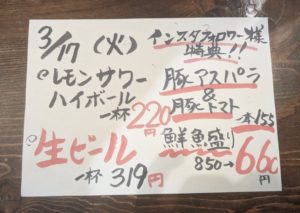 3/17（火）
レモンサワー
ハイボール
一杯220円
生ビール
一杯 319円
インスタフォロワー様
特典!!
豚アスパラ
&
豚トマト
一本155
鮮魚盛り
850→660円